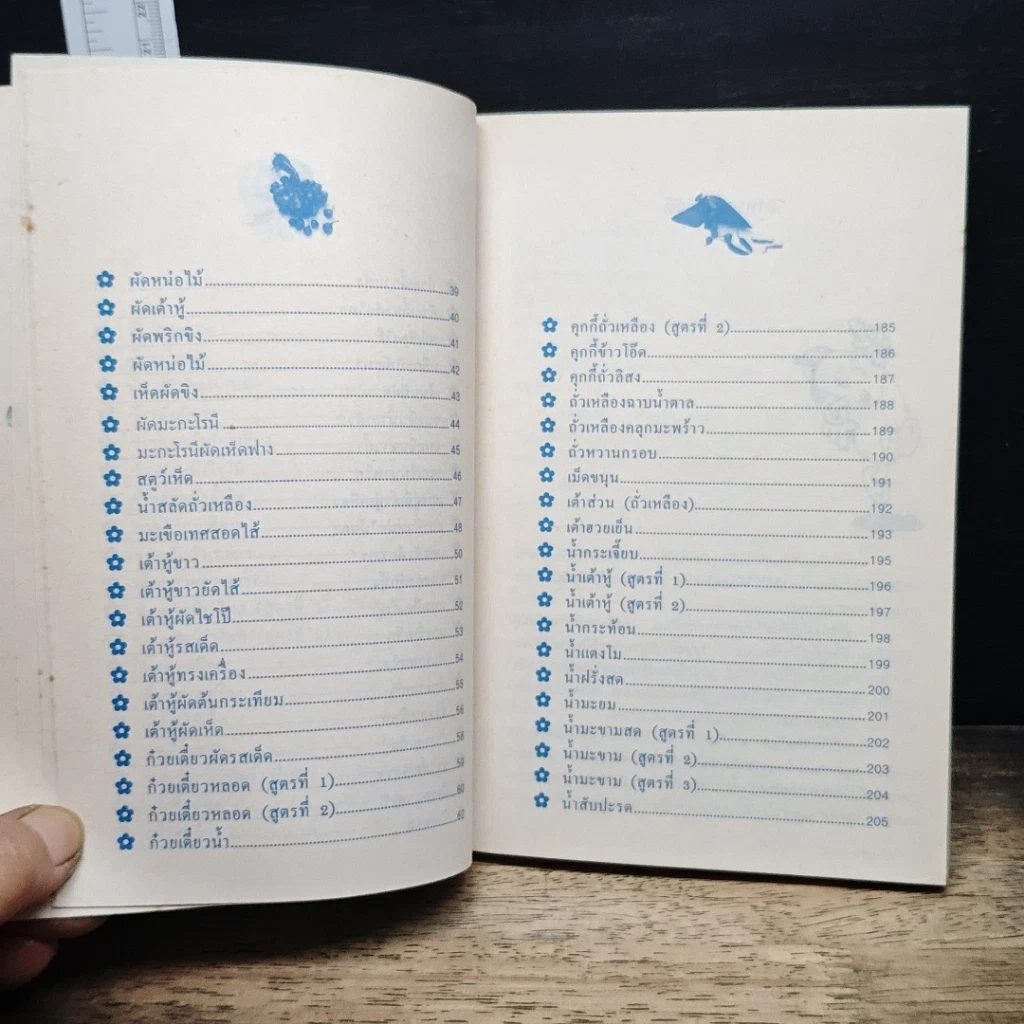 22
21
ผัดหน่อไม้ 39
ผัดเต้าหู้ 40
ผัดพริกขิง 41
ผัดหน่อไม้ 42
เห็ดผัดขิง 43
ผัดมะกะโรนี 44
มะกะโรนีผัดเห็ดฟาง 45
สตูว์เห็ด 46
น้ำสลัดถั่วเหลือง 47
มะเขือเทศสอดไส้ 48
เต้าหู้ขาว 50
เต้าหู้ขาวยัดไส้ 51
เต้าหู้ผัดไชโป๊ 52
เต้าหู้รสเด็ด 53
เต้าหู้ทรงเครื่อง 54
เต้าหู้ผัดต้นกระเทียม 55
เต้าหู้ผัดเห็ด 56
ก๋วยเตี๋ยวผัดรสเด็ด 58
ก๋วยเตี๋ยวหลอด (สูตรที่ 1) 59
ก๋วยเตี๋ยวหลอด (สูตรที่ 2) 60
ก๋วยเตี๋ยวน้ำ 62
คุกกี้ถั่วเหลือง (สูตรที่ 2) 185
คุกกี้ข้าวโอ๊ต 186
คุกกี้ถั่วลิสง 187
ถั่วเหลืองฉาบน้ำตาล 188
ถั่วเหลืองคลุกมะพร้าว 189
ถั่วหวานกรอบ 190
เม็ดขนุน 191
เต้าส่วน (ถั่วเหลือง) 192
เต้าฮวยเย็น 193
น้ำกระเจี๊ยบ 195
น้ำเต้าหู้ (สูตรที่ 1) 196
น้ำเต้าหู้ (สูตรที่ 2) 197
น้ำกระท้อน 198
น้ำแตงโม 199
น้ำฝรั่งสด 200
น้ำมะยม 201
น้ำมะขามสด (สูตรที่ 1) 202
น้ำมะขาม (สูตรที่ 2) 203
น้ำมะขาม (สูตรที่ 3) 204
น้ำสับปะรด 205